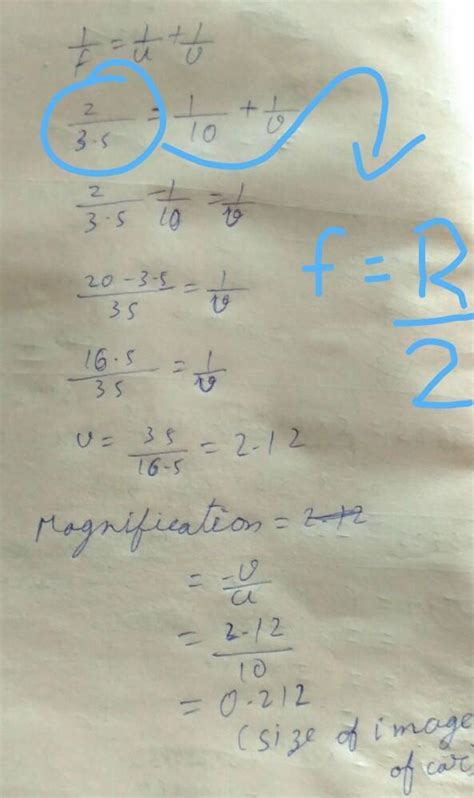 1/f = 1/u + 1/v
2/3.5 = 1/10 + 1/v
2/3.5 - 1/10 = 1/v
f = R/2
20-3.5/35 = 1/v
16.5/35 = 1/v
v = 35/16.5 = 2.12
Magnification = 2.12
= -v/u
= 2.12/10
= 0.212
(size of image
of car